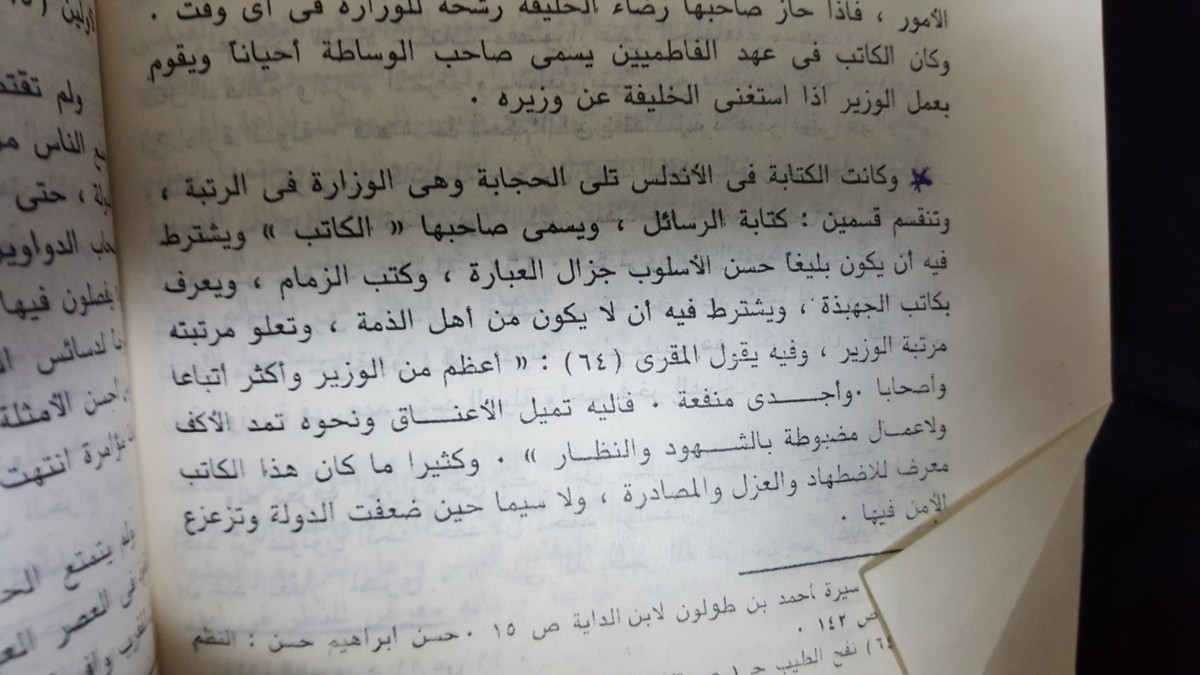 الأمور ، فاذا حاز صاحبها رضاء الخليفة رشحه للوزارة فى أى وقت .
وكان الكاتب فى عهد الفاطميين يسمى صاحب الوساطة أحيانا ويقوم
بعمل الوزير اذا استغنى الخليفة عن وزيره .
وكانت الكتابة فى الأندلس تلى الحجابة وهى الوزارة فى الرتبة ،
وتنقسم قسمين : كتابة الرسائل ، ويسمى صاحبها « الكاتب » ويشترط
فيه أن يكون بليغا حسن الأسلوب جزال العبارة ، وكتب الزمام ، ويعرف
بكاتب الجهبذة ، ويشترط فيه أن لا يكون من أهل الذمة ، وتعلو مرتبته
مرتبة الوزير ، وفيه يقول المقرى (٦٤) : « أعظم من الوزير وأكثر أتباعا
وأصحابا .وأجـــدى منفعة . فاليه تميل الأعنـــاق ونحوه تمد الأكف
ولاعمـال مضبوطة بالشـــهود والنظـار » . وكثيرا ما كان هذا الكاتب
معرض للاضطهاد والعزل والمصادرة ، ولا سيما حين ضعفت الدولة وتزعزع
الأمن فيها .
سيرة أحمد بن طولون لابن الداية ص ١٥ . حسن ابراهيم حسن : النظم
ص ١٤٢ .
نفح الطيب
ولم
الناس
، حتى
الدواوين
يفصلون فيها
لدسائس
أحسن الأمثلة
مؤامرة انتهت
ولم يتمتع
فى العصر